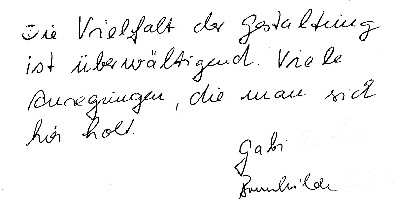 Die Vielfalt der Gestaltung
ist überwältigend. Viele
Anregungen, die man sich
hier holt.
Gabi
Brunhilde